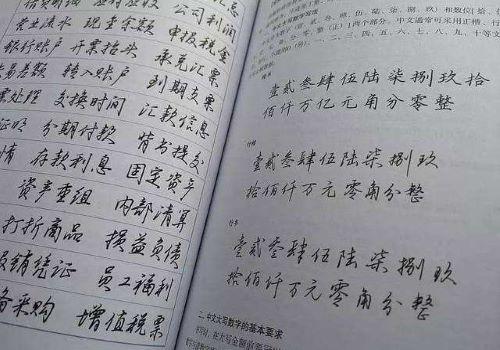 应付应收 公司利润
营业流水 现金余额 申报税金
银行账户 开票抬头 承兑汇票
易差额 转入账户 到期支票
票处理 交换时间 汇款信息
证明 分期付款 背书提交
情 存款利息 固定资产
资产重组 内部清算
打折商品 损益负债
报销凭证 员工福利
备采购 增值税票
叁、肆、伍、陆、柒、捌、玖）和数位
零、整（正）]两个部分。中文通常可采用正楷、
一、二、三、四、五、六、七、八、九、十等文
壹贰叁肆伍陆柒捌玖拾
佰仟万亿元角分零整
行楷
壹贰叁肆伍陆柒捌玖
拾佰仟万元零角分整
行书
壹贰叁肆伍陆柒捌玖
拾佰仟万元零角分整
二、中文大写数字的基本要求